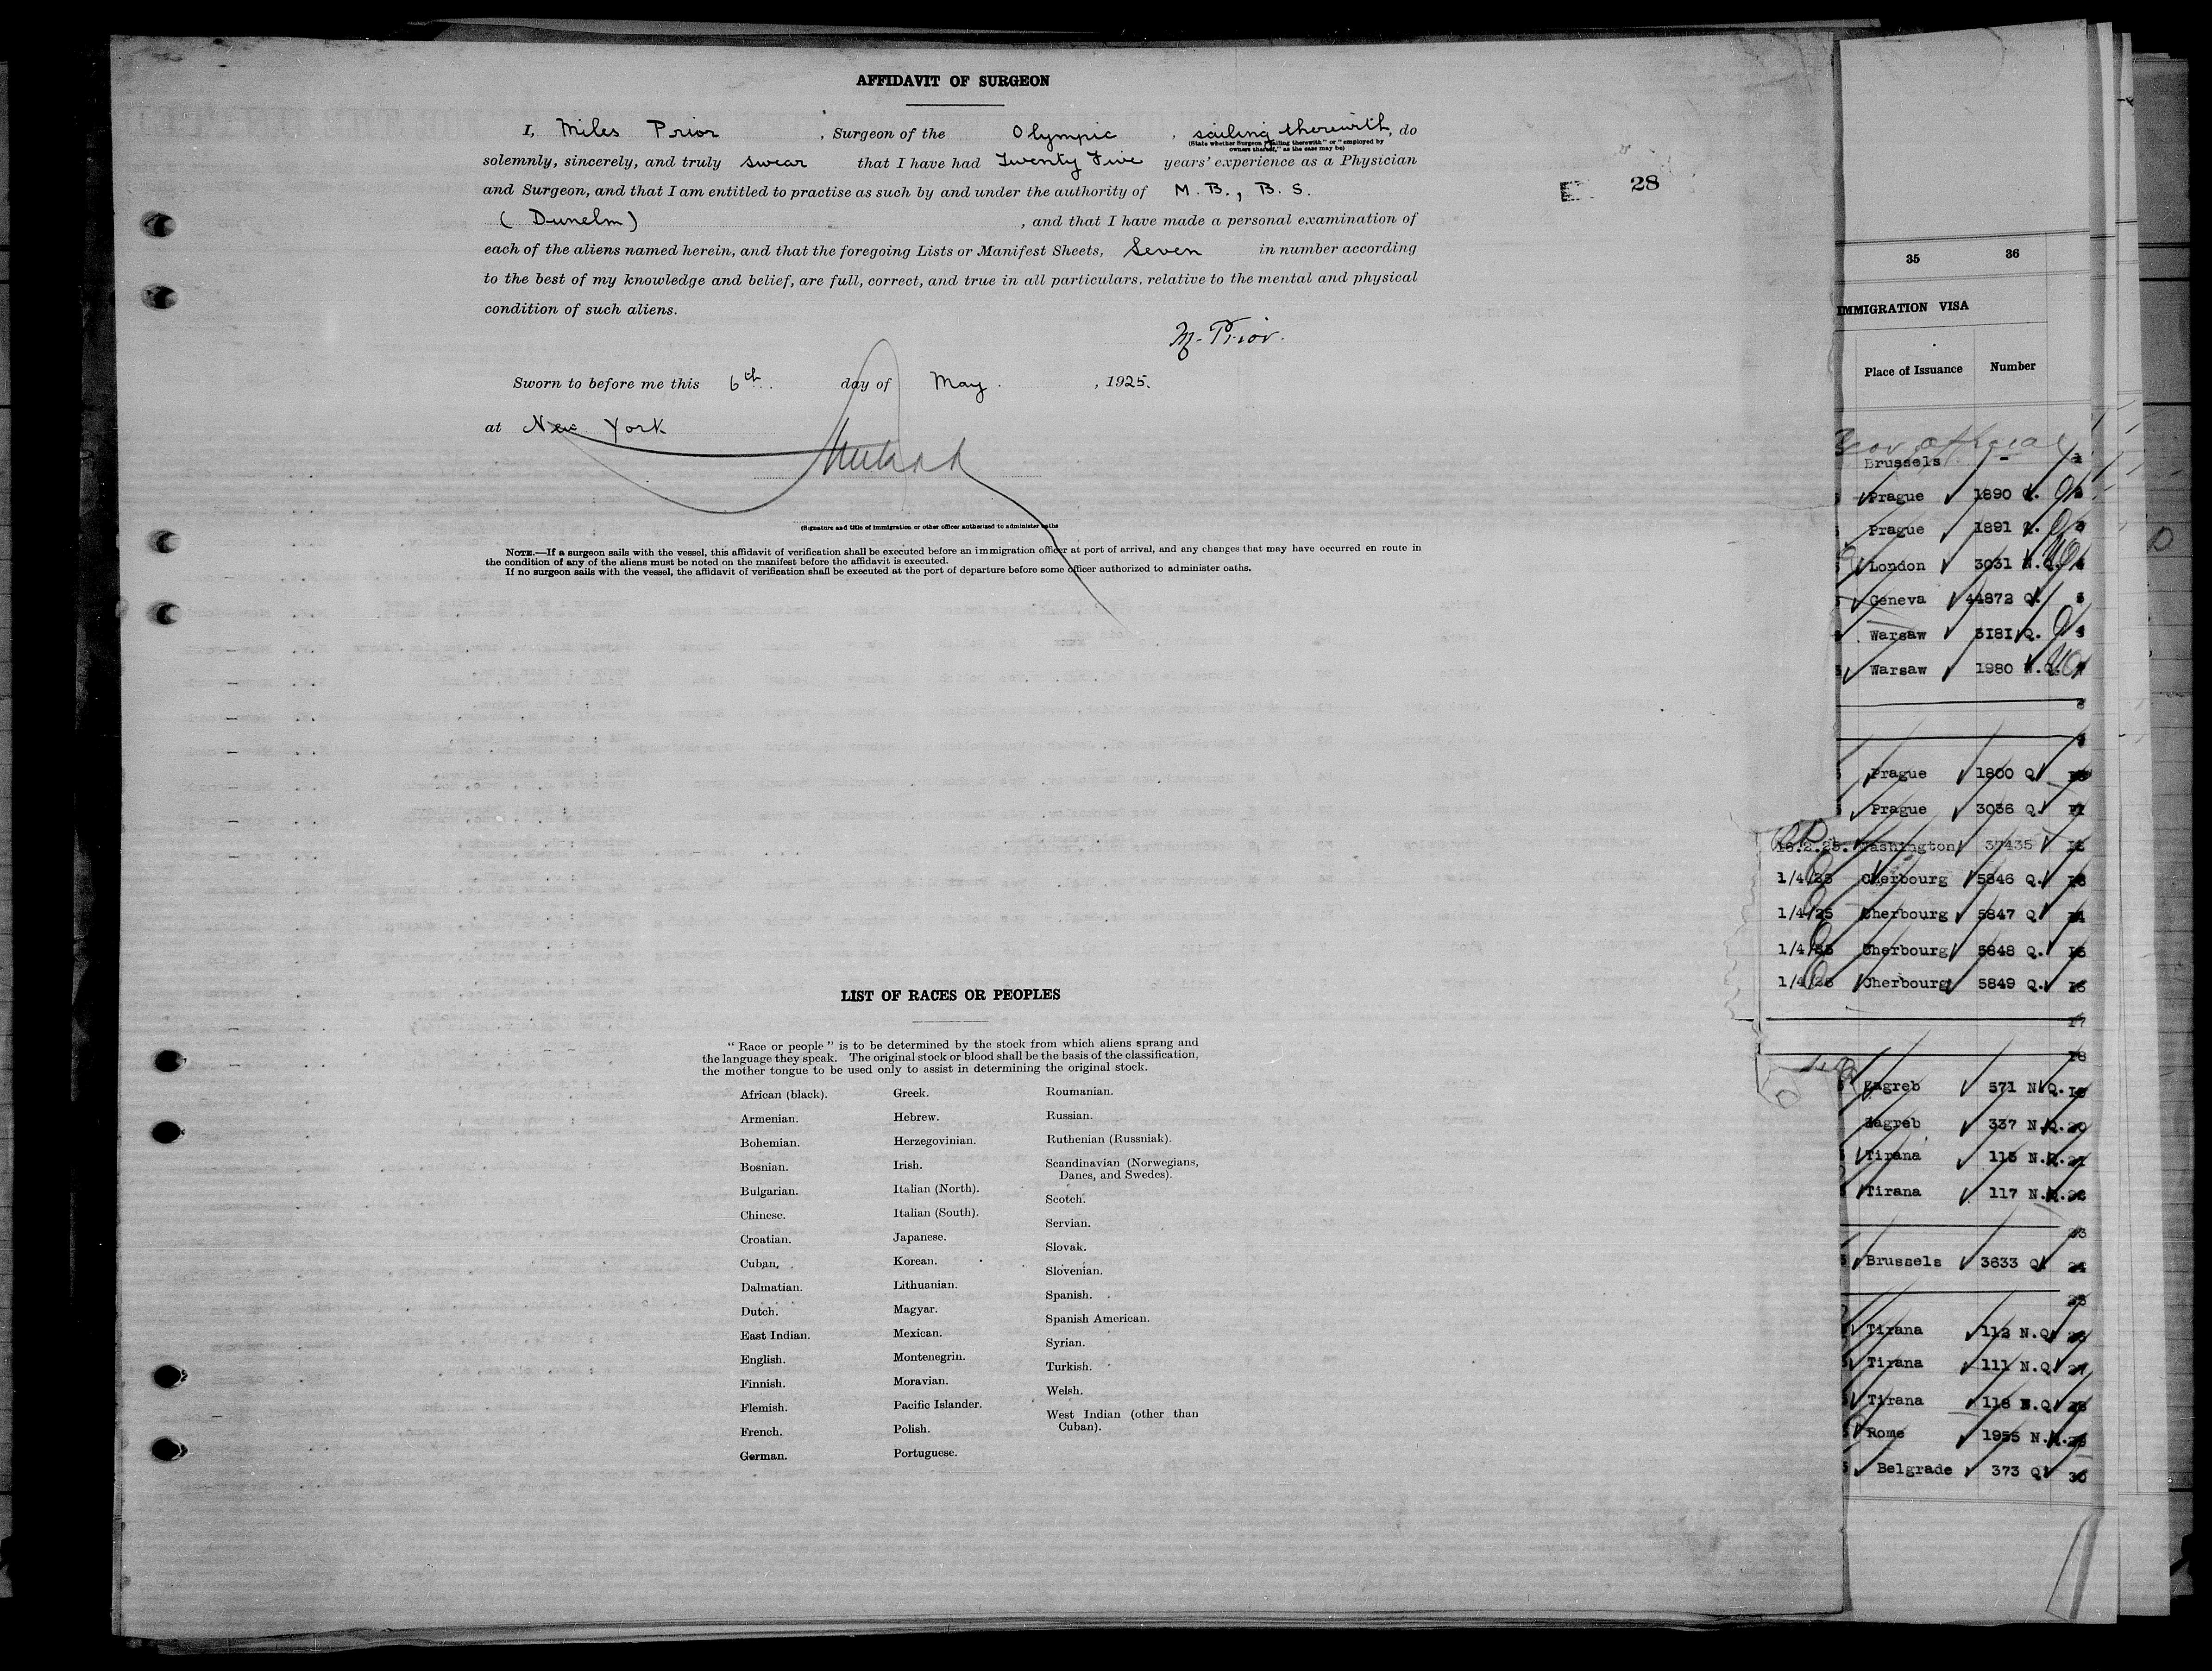 AFFIDAVIT OF SURGEON
I, Miles Prior, Surgeon of the Olympic, sailing therewith, do
(State whether Surgeon "sailing therewith" or "employed by
owners thereof," as the case may be)
solemnly, sincerely, and truly swear that I have had Twenty Five years' experience as a Physician
and Surgeon, and that I am entitled to practise as such by and under the authority of M.B., B.S.
(Dunelm), and that I have made a personal examination of
each of the aliens named herein, and that the foregoing Lists or Manifest Sheets, Seven in number according
to the best of my knowledge and belief, are full, correct, and true in all particulars, relative to the mental and physical
condition of such aliens.
M. Prior.
Sworn to before me this 6th day of May, 1925.
at New York
(Signature and title of immigration or other officer authorized to administer oaths
NOTE.—If a surgeon sails with the vessel, this affidavit of verification shall be executed before an immigration officer at port of arrival, and any changes that may have occurred en route in
the condition of any of the aliens must be noted on the manifest before the affidavit is executed.
If no surgeon sails with the vessel, the affidavit of verification shall be executed at the port of departure before some officer authorized to administer oaths.
28
LIST OF RACES OR PEOPLES
"Race or people" is to be determined by the stock from which aliens sprang and
the language they speak. The original stock or blood shall be the basis of the classification,
the mother tongue to be used only to assist in determining the original stock.
African (black).
Armenian.
Bohemian.
Bosnian.
Bulgarian.
Chinese.
Croatian.
Cuban.
Dalmatian.
Dutch.
East Indian.
English.
Finnish.
Flemish.
French.
German.
Greek.
Hebrew.
Herzegovinian.
Irish.
Italian (North).
Italian (South).
Japanese.
Korean.
Lithuanian.
Magyar.
Mexican.
Montenegrin.
Moravian.
Pacific Islander.
Polish.
Portuguese.
Roumanian.
Russian.
Ruthenian (Russniak).
Scandinavian (Norwegians,
Danes, and Swedes).
Scotch.
Servian.
Slovak.
Slovenian.
Spanish.
Spanish American.
Syrian.
Turkish.
Welsh.
West Indian (other than
Cuban).
35 36
IMMIGRATION VISA
Place of Issuance Number
Brussels -
Prague 1890 Q. 2
Prague 1891 Q. 3
London 3031 N.Q. 4
Geneva 44872 Q. 5
Warsaw 3181 Q.
Warsaw 1980 N.Q. 7
8
9
Prague 1800 Q. 10
Prague 3036 Q. 11
16.2.25. Washington 37435 12
1/4/25 Cherbourg 5846 Q. 13
1/4/25 Cherbourg 5847 Q. 14
1/4/25 Cherbourg 5848 Q. 15
1/4/25 Cherbourg 5849 Q. 16
17
18
Zagreb 571 N.Q. 19
Zagreb 337 N.Q. 20
Tirana 115 N.Q. 21
Tirana 117 N.Q. 22
23
Brussels 3633 Q. 24
25
Tirana 112 N.Q. 26
Tirana 111 N.Q. 27
Tirana 118 N.Q. 28
Rome 1955 N.Q. 29
Belgrade 373 Q. 30